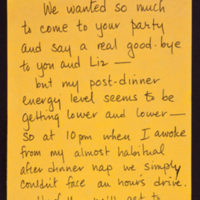 We wanted so much
to come to your party
and say a real good-bye
to you and Liz —
but my post-dinner
energy level seems to be
getting lower and lower —
so at 10 pm when I awoke
from my almost habitual
after dinner nap we simply
couldn't face an hours drive.
get to